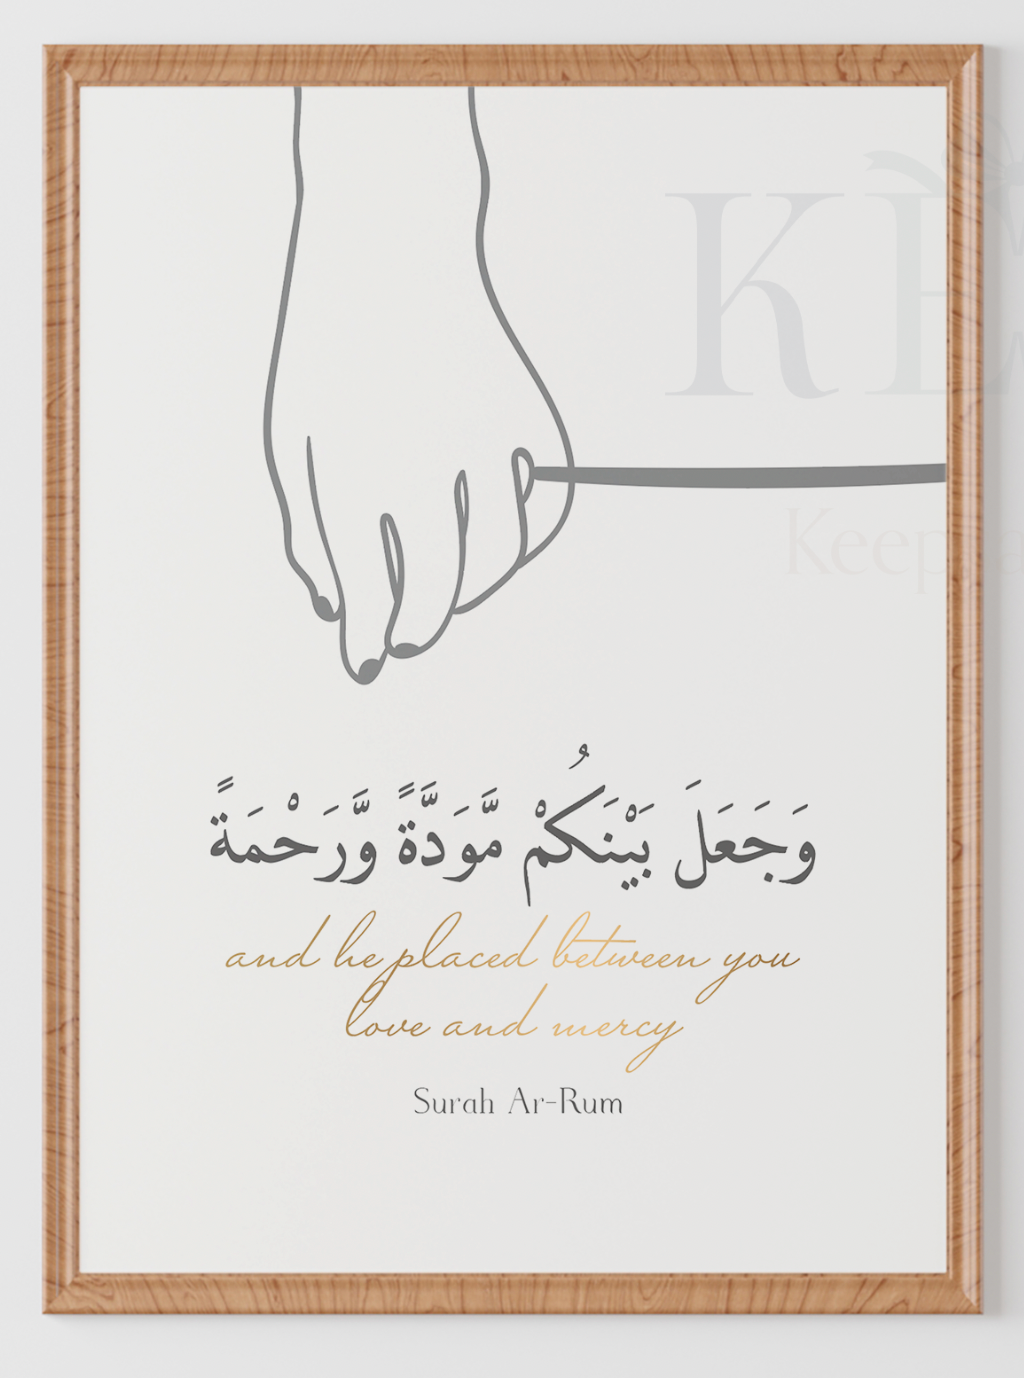 KE
Keep
وَجَعَلَ بَيْنَكُمْ مَّوَدَّةً وَّرَحْمَةً
and he placed between you
love and mercy
Surah Ar-Rum